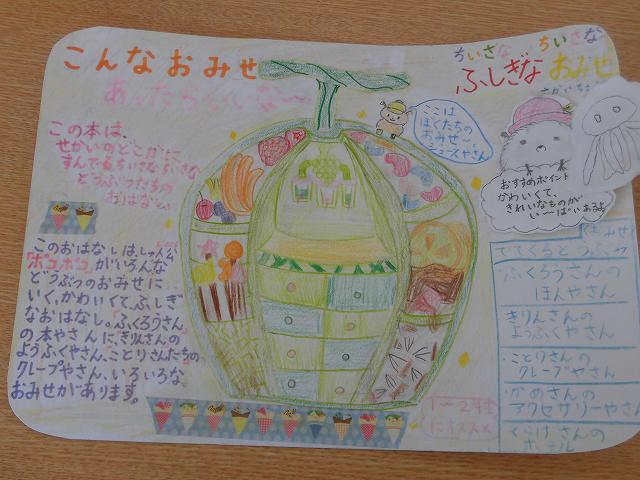 こんなおみせ
あったらいいな〜
ちいさな ちいさな
ふしぎな おみせ
この本は、
せかいのどこかに
すんでるちいさなちいさな
どうぶつたちの
おはなし。
ここは
ぼくたちの
おみせ…
ジュースやさん
おすすめポイント
かわいくて、
きれいなものが
い〜ぱいあるよ
このおはなしは、しゅ人公
「ポコポコ」がいろんな
どうぶつのおみせに
いく、かわいくて、ふしぎ
なおはなし。「ふくろうさん
の本やさん」に、「きりんさんの
ようふくやさん、ことりさんたちの」
クレープやさん、いろいろな
おみせがあります。
おみせ
でてくるどうぶつ
・ふくろうさんの
ほんやさん
・きりんさんの
ようふくやさん
・ことりさんの
クレープやさん
・かめさんの
アクセサリーやさん
・くらげさんの
ホテル
1〜2年生
にオススメ